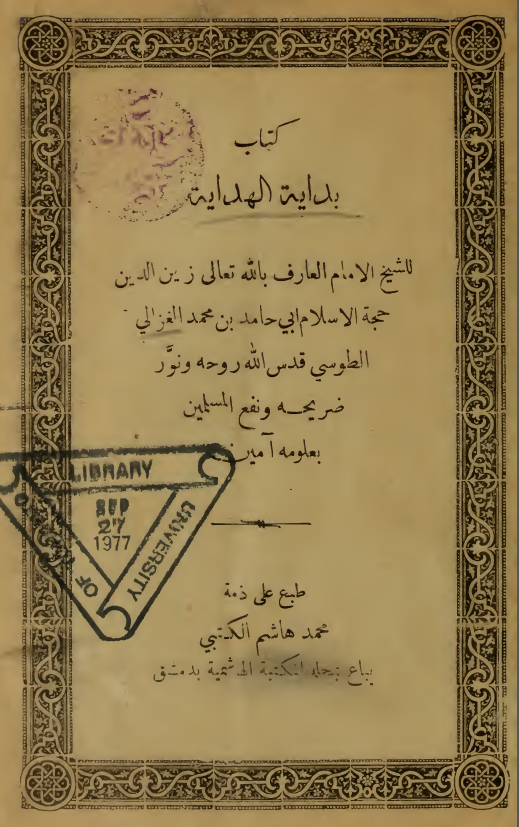 كتاب
بداية الهداية
للشيخ الامام العارف بالله تعالى زين الدين
حجة الاسلام ابي حامد بن محمد الغزالي
الطوسي قدس الله روحه ونوَّر
ضريحــه ونفع المسلمين
بعلومه آمين
LIBRARY
SEP
27
1977
UNIVERSITY
OF
طبع على ذمة
محمد هاشم الكتبي
يباع بمحله المكتبة الهاشمية بدمشق